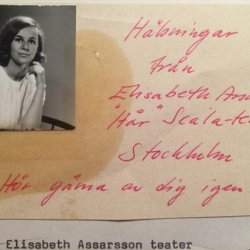 Hälsningar
från
Elisabeth
"Hår" Scala-te
Stockholm
Hör gärna av dig igen
Elisabeth Assarsson teater